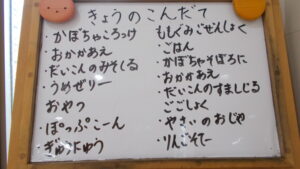 きょうのこんだて
・かぼちゃころっけ
・おかかあえ
・だいこんのみそしる
・うめゼリー
おやつ
・ぽっぷこーん
・ぎゅうにゅう
ももぐみごぜんしょく
・ごはん
・かぼちゃそぼろに
・おかかあえ
・だいこんのすましじる
ごごしょく
・やさいのおじや
・りんごそてー